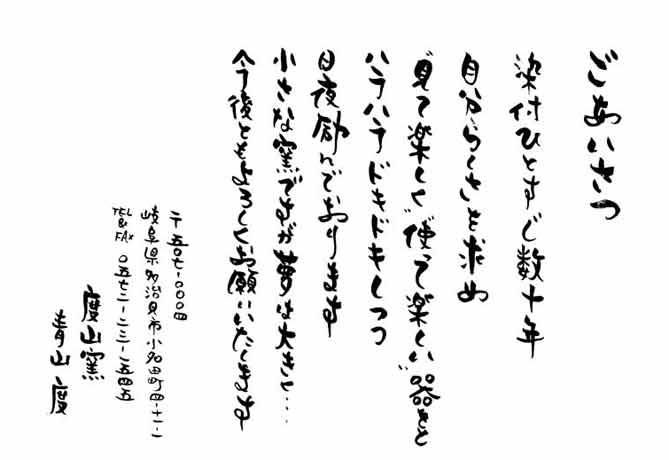 ごあいさつ
染付ひとすじ数十年
自分らしさを求め
"見て楽しく""使って楽しい"器をと
ハラハラドキドキしつつ
日夜励んでおります
小さな窯ですが夢は大きく…
今後ともよろしくお願いいたします
〒五〇七-〇〇〇四
岐阜県多治見市小名田町四-十一-一
TEL & FAX 〇五七二-二三-二五四五
度山窯
青山度